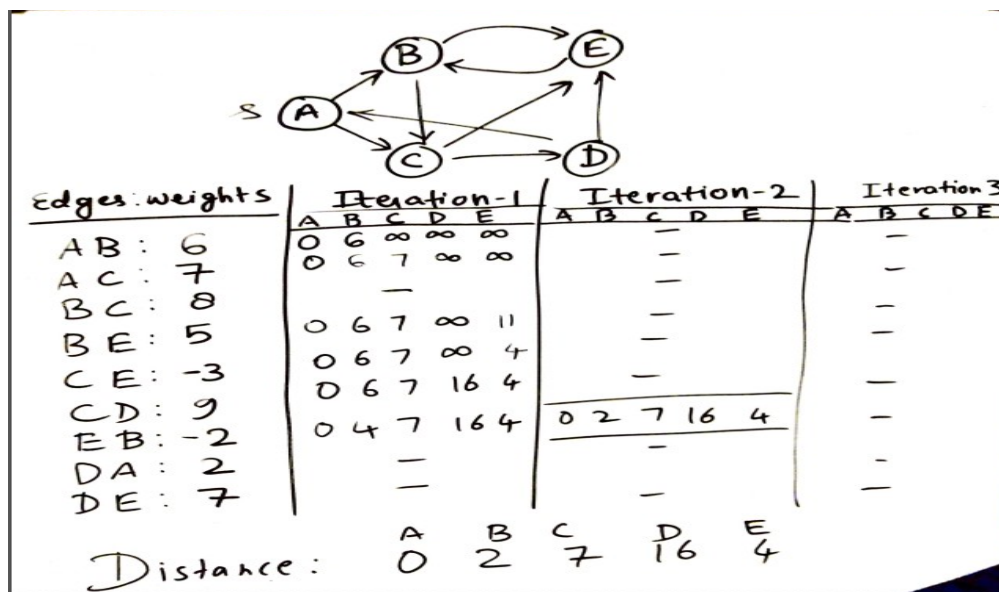 B E
S A
C D
Edges: weights Iteration-1 Iteration-2 Iteration 3
A B C D E A B C D E A B C D E
AB: 6 0 6 ∞ ∞ ∞ - -
AC: 7 0 6 7 ∞ ∞ - -
BC: 8 - - -
BE: 5 0 6 7 ∞ 11 - -
CE: -3 0 6 7 ∞ 4 - -
CD: 9 0 6 7 16 4
EB: -2 0 4 7 16 4 0 2 7 16 4 -
DA: 2 - - -
DE: 7 - - -
A B C D E
Distance: 0 2 7 16 4